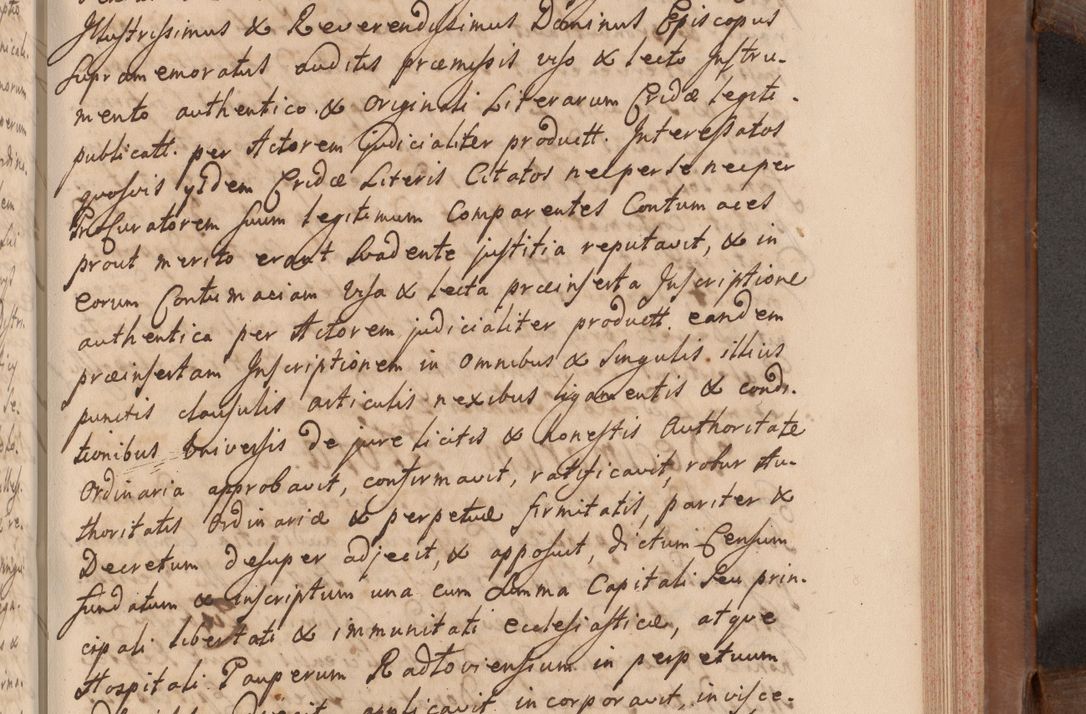 Illustrissimus & Reverendissimus Dominus Episcopus
supramemoratus auditis præmissis viso & lecto Instru-
mento authentico & originali Literarum Cridæ legiti-
publicatt. per Actorem Judicialiter productt. Interessatos
quosvis ysdem Cridæ Literis Citatos nec per se nec per
Procuratorem suum legitimum Comparentes Contumaces
prout merito erant suadente justitia reputavit, & in
eorum Contumaciam visa & lecta præinserta Inscriptione
authentica per Actorem judicialiter productt. eandem
præinsertam Inscriptionem in omnibus & singulis illius
punctis clausulis articulis nexibus ligamentis & condi-
tionibus Universis de jure licitis & honestis Authoritate
Ordinaria approbavit, confirmavit, ratificavit, robur Au-
thoritatis Ordinariæ & perpetuæ firmitatis, pariter &
Decretum desuper adjecit, & apposuit, dictum Censum
fundatum & inscriptum una cum summa Capitali seu prin-
cipali libertati & immunitati ecclesiasticæ, atque
Hospitali Pauperum Radłoviensium in perpetuum
applicavit incorporavit, invisce-